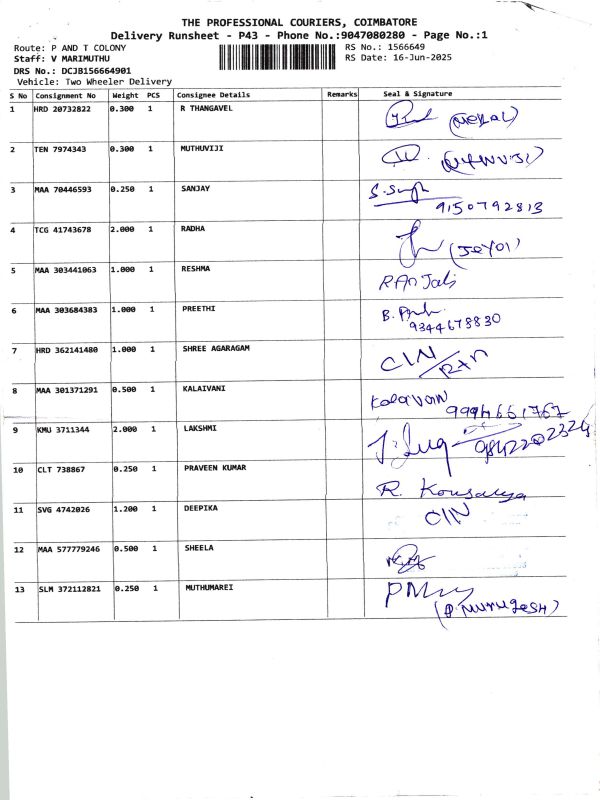 THE PROFESSIONAL COURIERS, COIMBATORE
Delivery Runsheet - P43 - Phone No.:9047080280 - Page No.:1
Route: P AND T COLONY
RS No.: 1566649
Staff: V MARIMUTHU
RS Date: 16-Jun-2025
DRS No.: DCJB156664901
Vehicle: Two Wheeler Delivery
S No Consignment No Weight PCS Consignee Details Remarks Seal & Signature
1 HRD 20732822 0.300 1 R THANGAVEL
2 TEN 7974343 0.300 1 MUTHUVIJI
3 MAA 70446593 0.250 1 SANJAY
9150792813
4 TCG 41743678 2.000 1 RADHA
5 MAA 303441063 1.000 1 RESHMA
6 MAA 303684383 1.000 1 PREETHI
9344673830
7 HRD 362141480 1.000 1 SHREE AGARAGAM
8 MAA 301371291 0.500 1 KALAIVANI
9994651767
9 KMU 3711344 2.000 1 LAKSHMI
10 CLT 738867 0.250 1 PRAVEEN KUMAR
R. Kousalya
11 SVG 4742026 1.200 1 DEEPIKA
12 MAA 577779246 0.500 1 SHEELA
13 SLM 372112821 0.250 1 MUTHUMAREI
(P. MURUGESH)